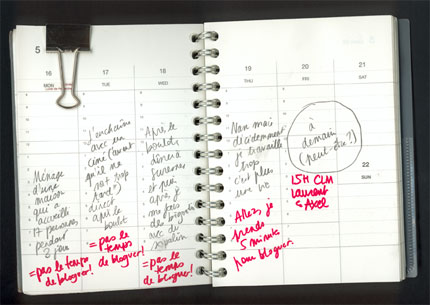 5
16
MON
17
TUE
18
WED
Ménage
d'une
maison
qui a
accueilli
17 personnes
pendant
2 jours
= pas le temps
de bloguer!
J'enchaîne
avec un
ciné (Laurent
qu'il ne
soit trop
tard°)
direct
après le
boulot
= pas le
temps
de bloguer!
Après le
boulot,
dîner à
Suresnes
et puis
après je
me fais
des
avec de
= pas le
temps
de bloguer!
19
THU
20
FRI
21
SAT
Nan mais
décidemment
je travaille
trop
c'est plus
une vie
Allez, je
prends
5 minutes
pour bloguer.
à
demain
(peut-être?)
22
SUN
15H CLM
Laurent
& Axel